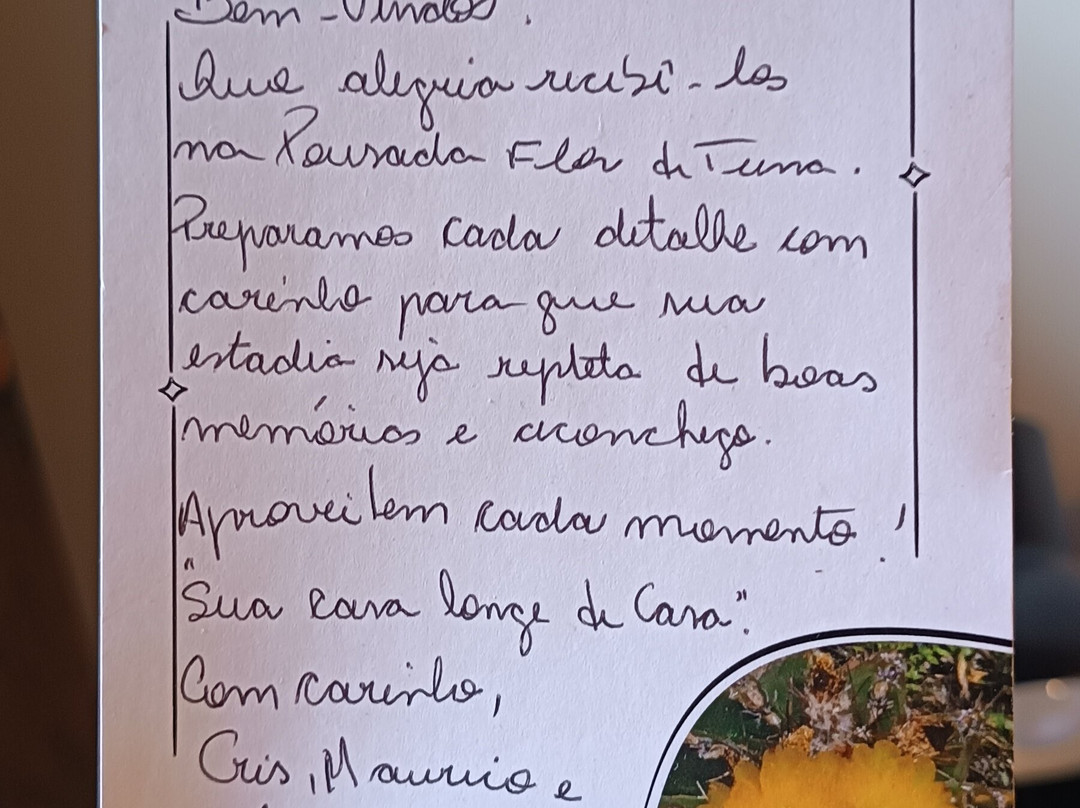 Bem-Vindos.
Que alegria recebê-los
na Pousada Flor de Tuna.
Preparamos cada detalhe com
carinho para que sua
estadia seja repleta de boas
memórias e aconchego.
Aproveitem cada momento!
"Sua casa longe de Casa".
Com carinho,
Cris, Mauricio e